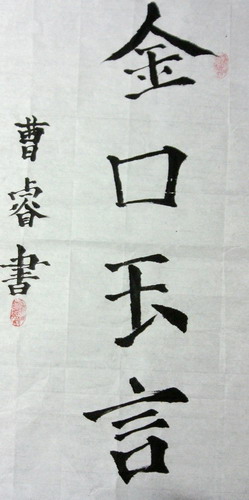 金口玉言
曹睿書